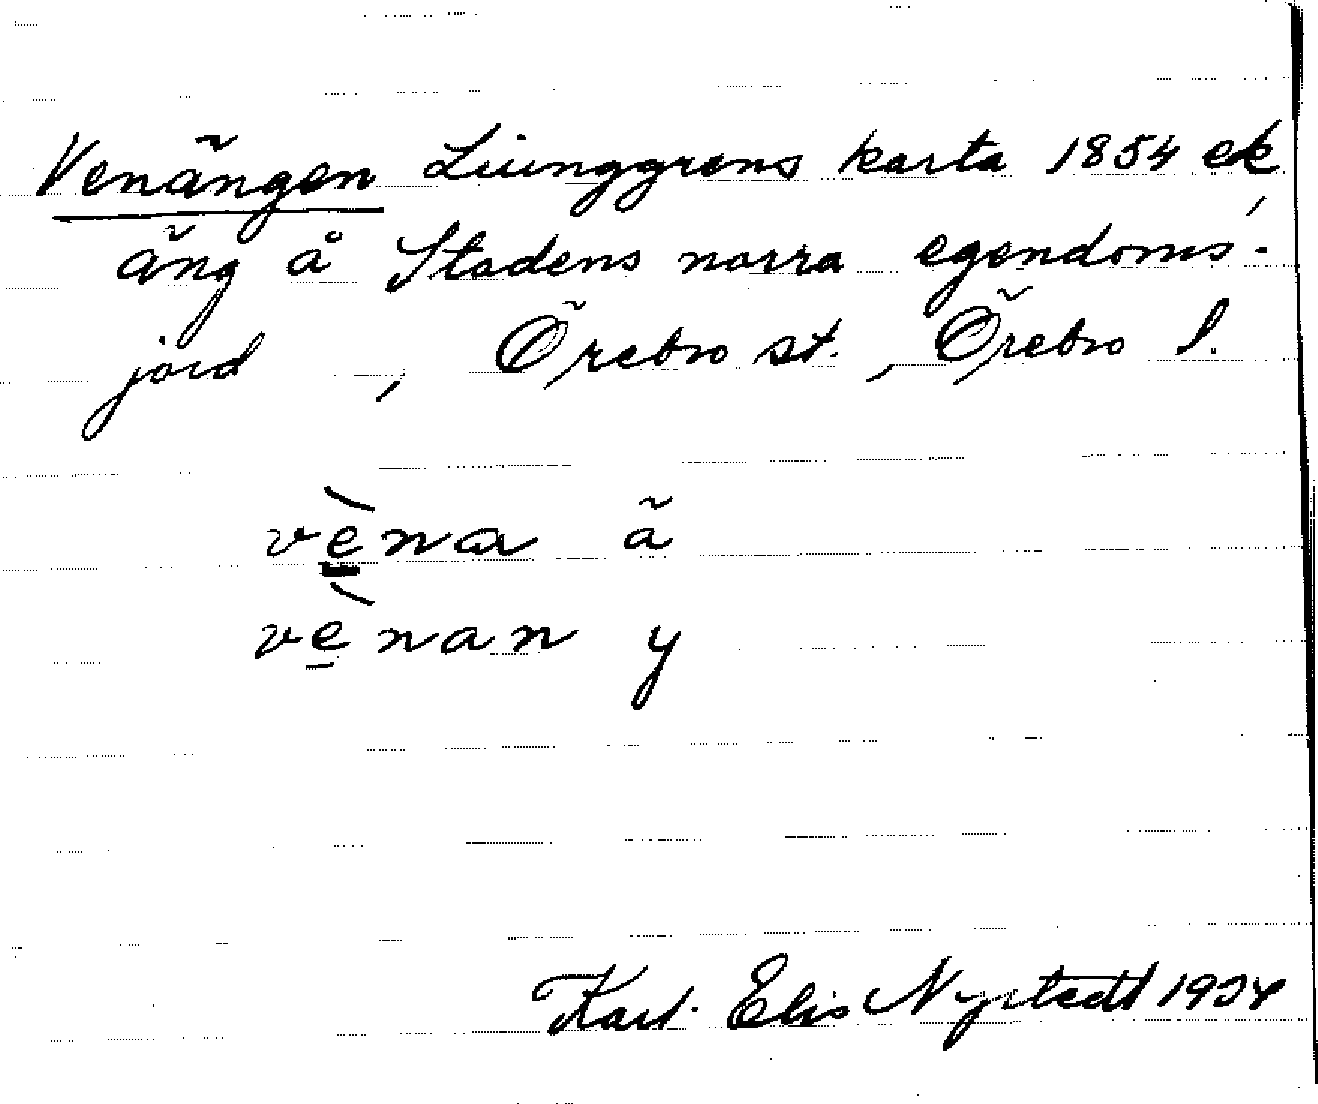 Venängen Liunggrens karta 1854 ek,
äng å Stadens norra egendoms-
jord , Örebro st., Örebro l.
vèna ä
vènan y
Karl-Elis Nystedt 1934